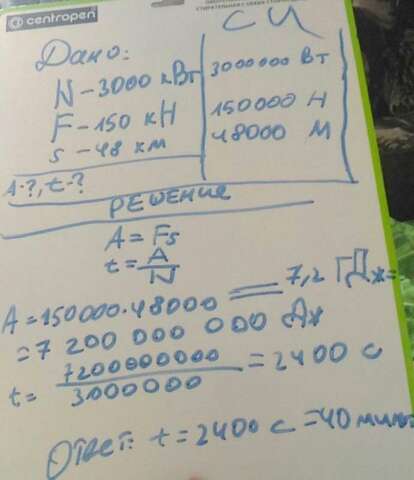 centropen
СИ
Дано:
N - 3000 кВт 3000000 Вт
F - 150 кН 150000 Н
s - 48 км 48000 М
A-?, t-?
РЕШЕНИЕ
A = Fs
t = A/N
A = 150000·48000 = 7,2 ГДж =
= 7 200 000 000 Дж
t = 7200000000/3000000 = 2400 с
Ответ: t = 2400 с = 40 минут